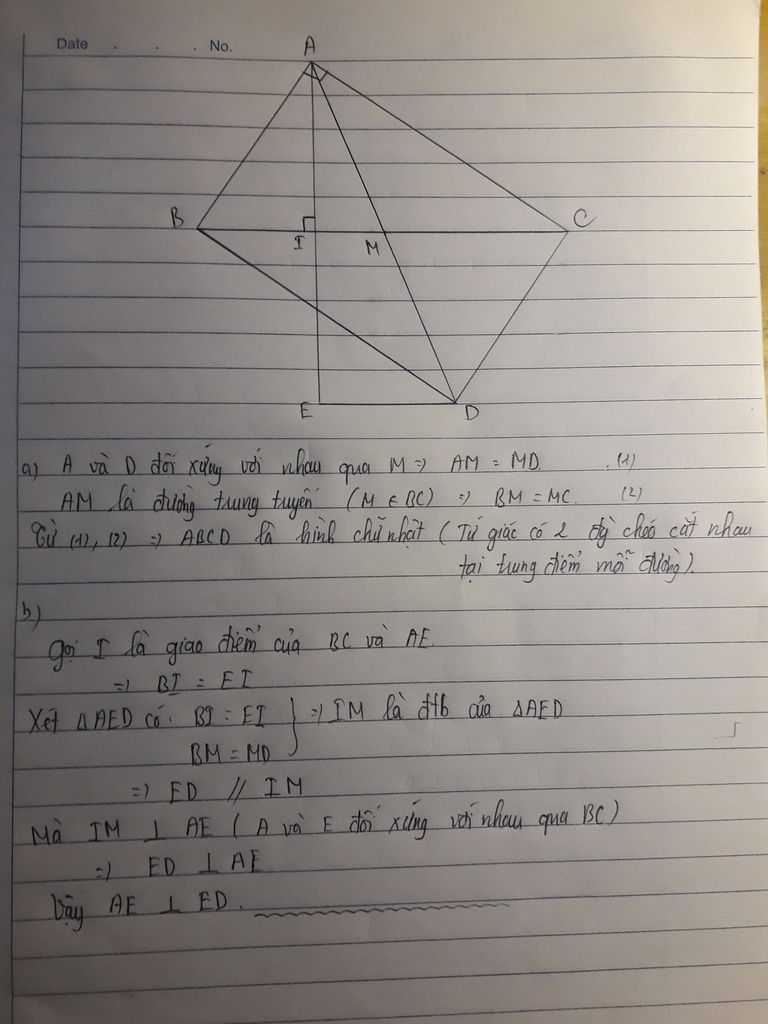 Date . . . No.
A
B
C
I
M
E
D
a) A và D đối xứng với nhau qua M => AM = MD. (1)
AM là đường trung tuyến (M ∈ BC) => BM = MC. (2)
Từ (1), (2) => ABCD là hình chữ nhật (Tứ giác có 2 đg` chéo cắt nhau
tại trung điểm mỗi đường).
b)
Gọi I là giao điểm của BC và AE.
=> BI = EI
Xét ΔAED có: BI = EI } => IM là đtb của ΔAED
BM = MD
=> ED // IM
Mà IM ⊥ AE ( A và E đối xứng với nhau qua BC)
=> ED ⊥ AE.
Vậy AE ⊥ ED.